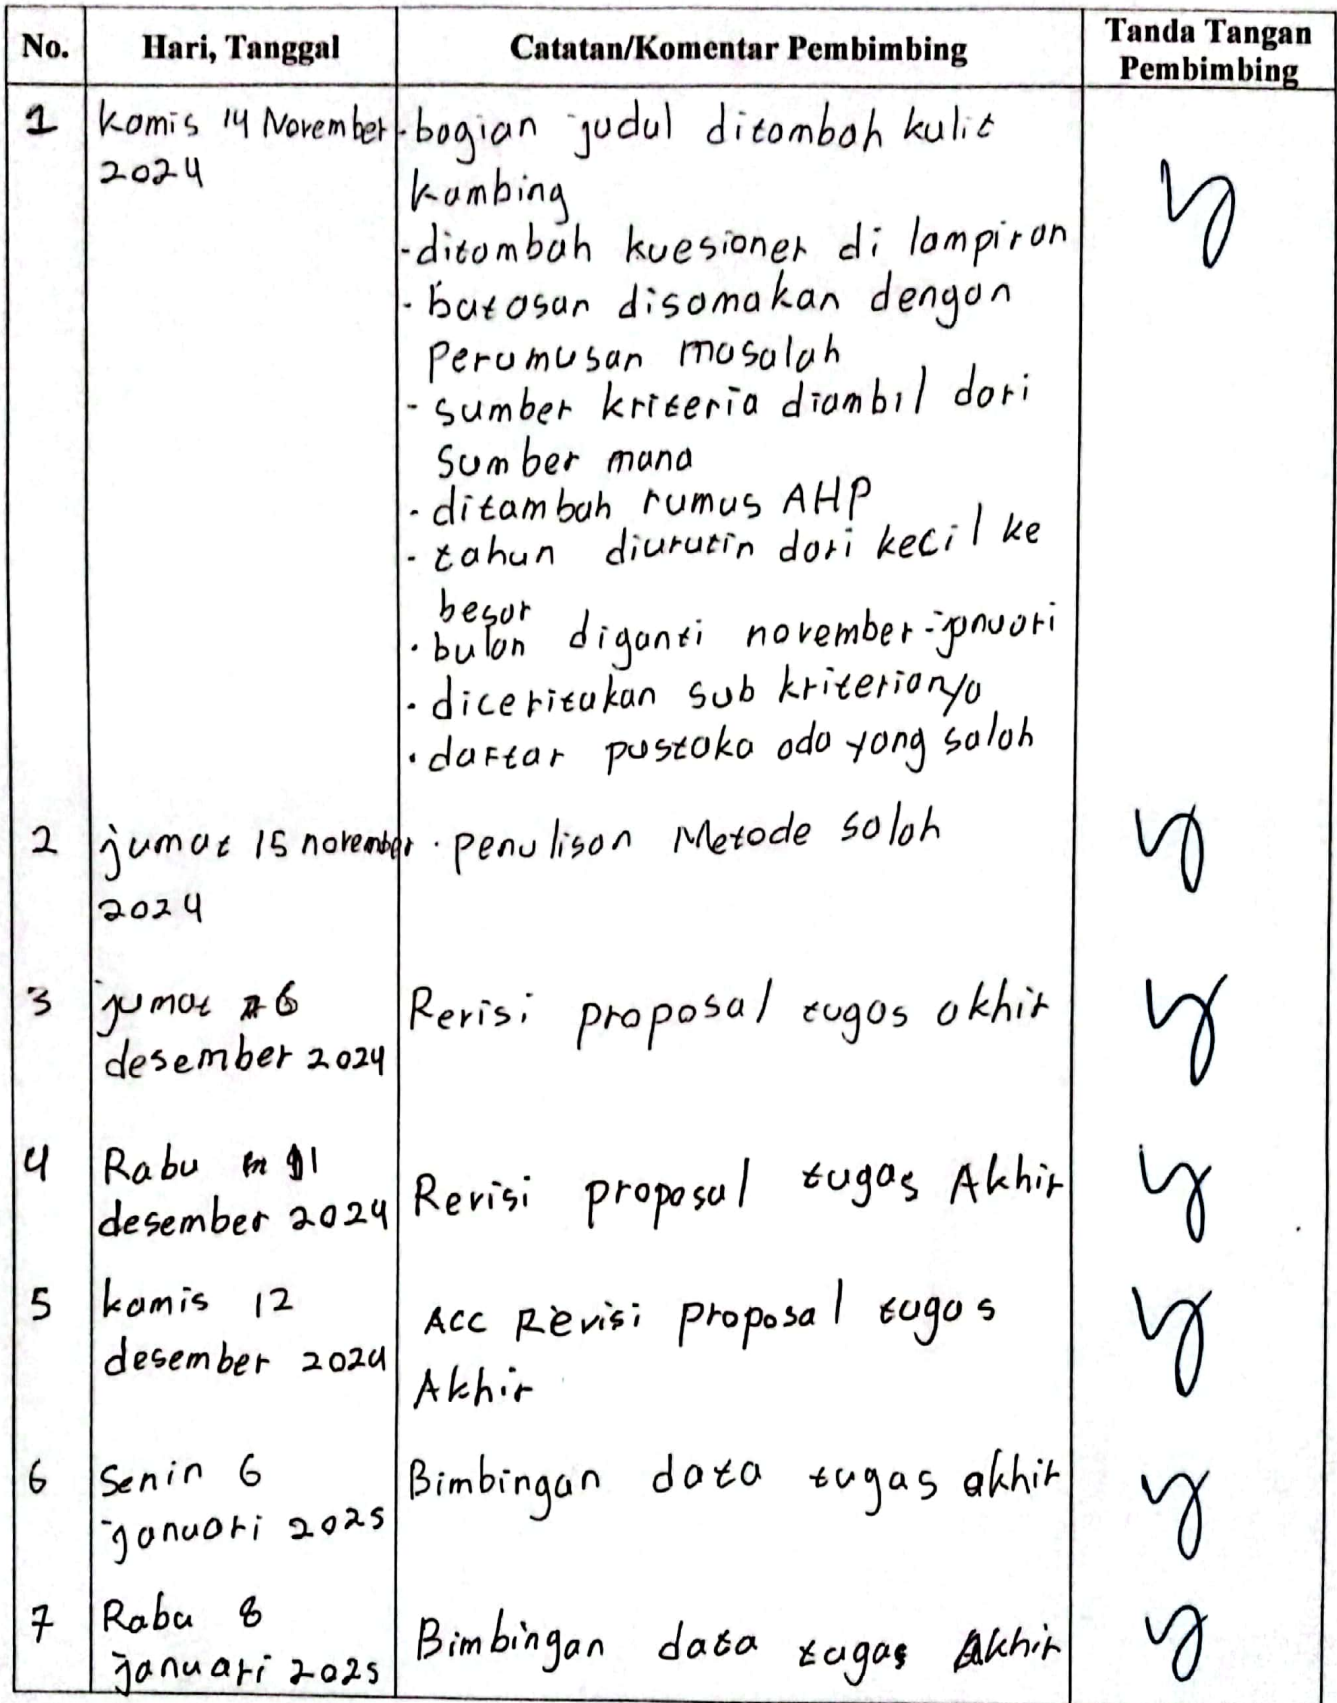 No. Hari, Tanggal Catatan/Komentar Pembimbing Tanda Tangan Pembimbing
1 kamis 14 November -bagian judul ditambah kulit
2024
kambing
-ditambah kuesioner di lampiran
- batasan disamakan dengan
perumusan masalah
- sumber kriteria diambil dari
sumber mana
- ditambah rumus AHP
- tahun diurutin dari kecil ke
besar
- bulan diganti november-januari
- diceritakan sub kriterianya
- daftar pustaka ada yang salah
2 jumat 15 november - penulisan Metode salah
2024
3 jumat 6 Revisi proposal tugas akhir
desember 2024
4 Rabu 11 Revisi proposal tugas Akhir
desember 2024
5 kamis 12 ACC Revisi proposal tugas
desember 2024 Akhir
6 Senin 6 Bimbingan data tugas akhir
januari 2025
7 Rabu 8 Bimbingan data tugas Akhir
januari 2025